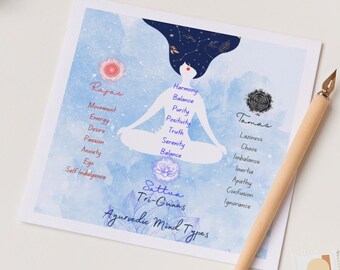 Rajas
Movement
Energy
Desire
Passion
Anxiety
Ego
Self Indulgence
Harmony
Balance
Purity
Positivity
Truth
Serenity
Balance
Sattva
Tamas
Laziness
Chaos
Imbalance
Inertia
Apathy
Confusion
Ignorance
Tri-Gunas
Ayurvedic Mind Types